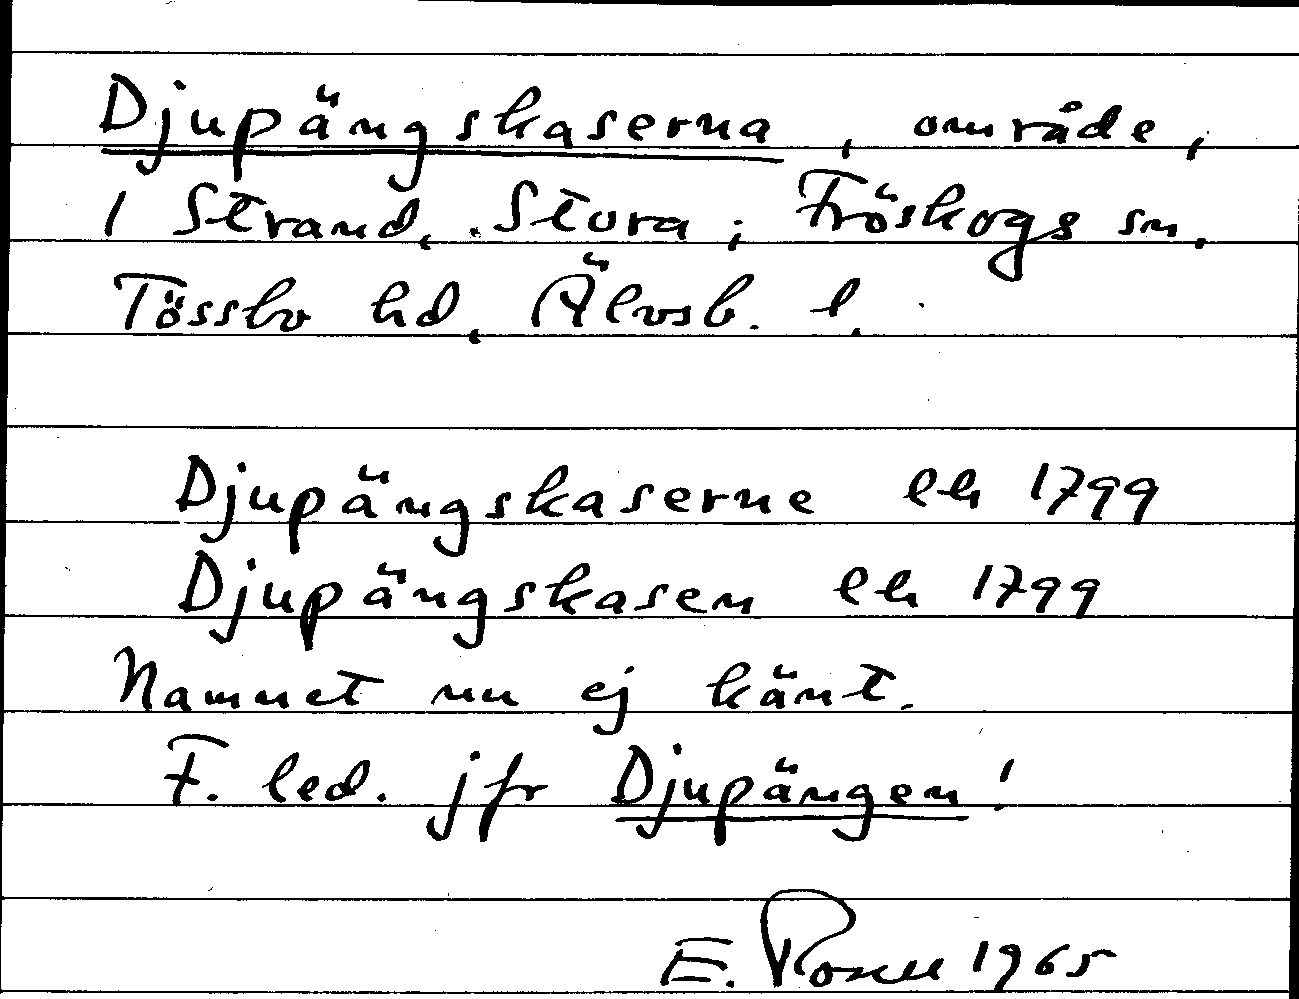 Djupängskaserna, område,
1 Strand, Stora; Fröskogs sn.
Tössbo hd, Älvsb. l.
Djupängskaserne lh 1799
Djupängskasen lh 1799
Namnet nu ej känt.
F. led. jfr Djupängen!
E. Rosell 1965